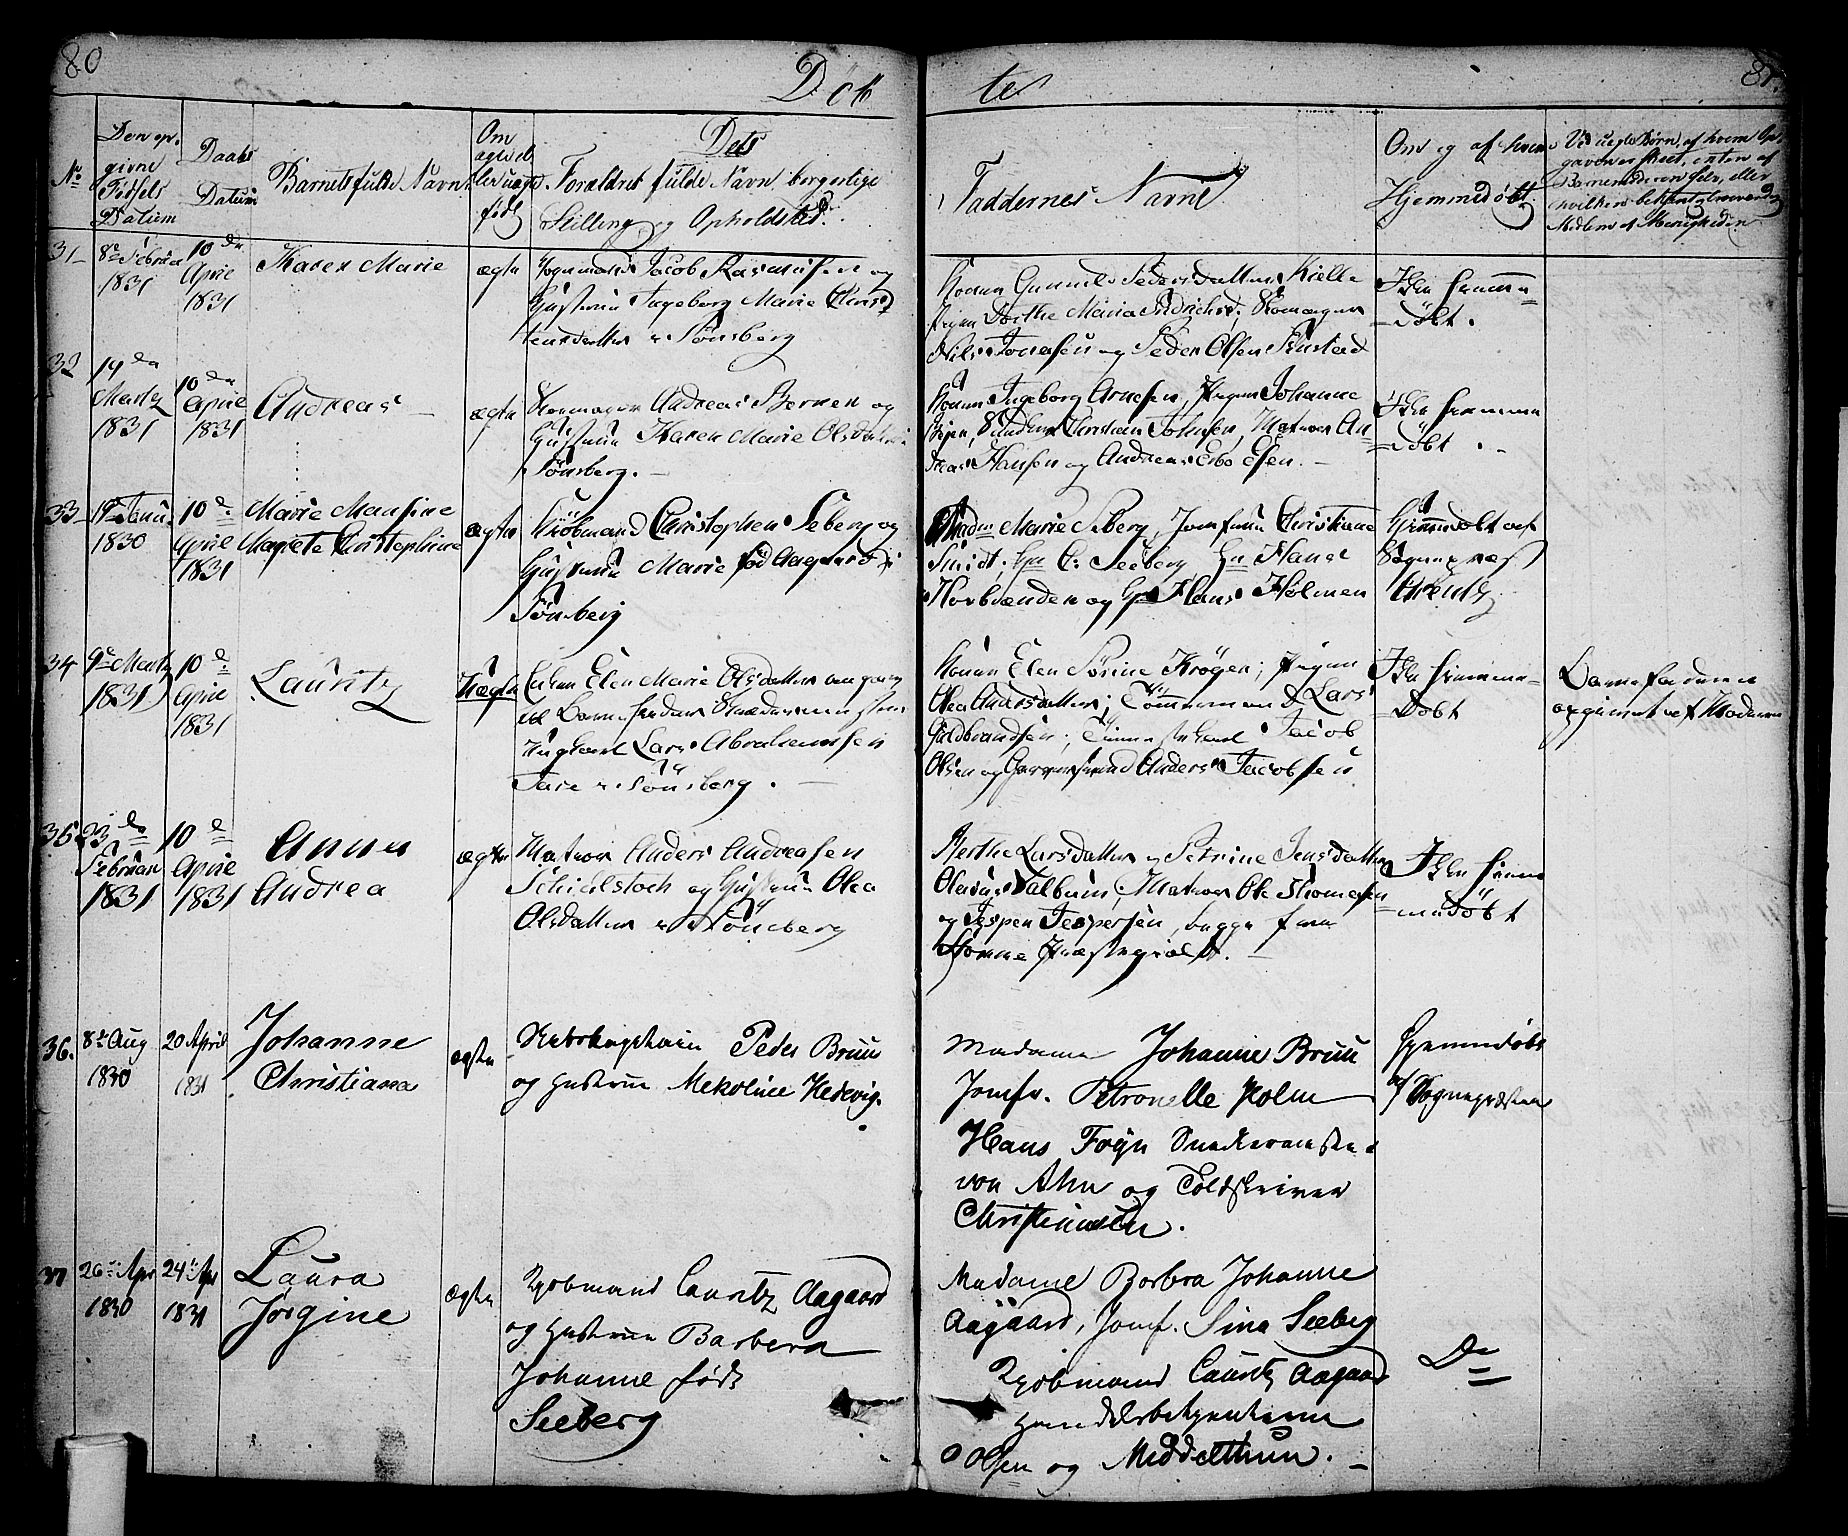 80
Døb
te
81.
No
Den op-
givne
Fødsels
Datum
Daabs
Datum
Barnets fulde Navn
Om
ægte el-
ler uægte
født
Dets
Forældres fulde Navn, borgerlige
Stilling og Opholdsted.
Faddernes Navne
Om og af hvem
Hjemmedøbt
Ved uægte Børn, af hvem Op-
gaven er skeet, enten af
Barnemoderen selv, eller
hvilken bekjendt troværdig
Medlem af Menigheden
31
8de Februar
1831
10de
April
1831
Karen Marie
ægte
Jacob Rasmusen og
Hustrue Ingeborg Marie Christ
tensdatter i Tønsberg
Konen Gunnild Pedersdatter Kielle
Pigen Dorthe Maria Fredrichs, Skomager
Nils Jonasen og Peder Olsen Rustad
Ikke hjemme
døbt.
32
14de
Martz
1831
10de
April
1831
Andreas
ægte
Skomager Andreas Bernen og
Hustrue Karen Marie Olsdatter i
Tønsberg.
Konen Ingeborg Arnesen, Pigen Johanne
Christian Johnsen, Matros An
dreas Hansen og Andreas
Ikke hjemme
døbt.
33
19de Janu.
1830
10de
April
1831
Marie Mausine
Magrete Christophine
ægte
Kiøbmand Christopher Seberg og
Hustrue Marie fød Aagaard i
Tønsberg
Madm Marie Seberg, Jomfrue Christiane
Smidt, Hr C. Seeberg, Hr Hans
og Hr Hans Holmen
Hjemmedøbt af
Sognepræst
Arentz
34
9de Martz
1831
10de
April
1831
Lauritz
Uægte
Elen Marie Olsdatter angav
til Barnefader
Lars Abrahamsen
i Tønsberg.
Konen Elen Sørine Krøger, Pigen
Olea Andersdatter, Tømmermand Lars
Guldbrandsen, Jacob
Olsen og Anders Jacobsen
Ikke hjemme
Døbt
Barnefaderen
opgivet af Moderen
35
23de
Februar
1831
10de
April
1831
Anne
Andrea
ægte
Matros Anders Andreasen
og Hustrue Olea
Olsdatter i Tønsberg
Berthe Larsdatter og Petrine Jensdatter
Matros Ole Thomasen
og Jesper Jespersen, begge fra
Præstegield.
Ikke hjem
medøbt
36.
8de Aug
1830
20 April
1831
Johanne
Christiana
ægte
Peder Bruun
og Hustrue Mekoline Hedevig.
Madame Johanne Bruun
Jomfr. Petronelle Holm
Hans Føyn Snedkermester
von Ahn og Toldskriver
Christiansen.
Hjemmedøbt
af Sognepræsten
37
26de Apr
1830
24de Apr
1831
Laura
Jørgine
ægte
Kjøbmand Lauritz Aagaard
og Hustrue Barbera
Johanne født
Seeberg
Madame Barbra Johanne
Aagaard, Jomf. Sina Seeberg
Kjøbmand Lauritz Aagaard
Handelsbetjenterne
Olsen og Middelthun.
Do